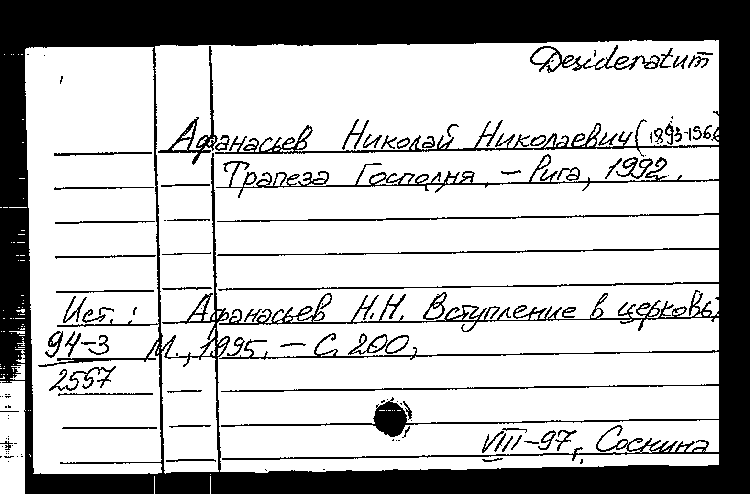 Desideratum
Афанасьев Николай Николаевич (1893-196
Трапеза Господня. – Рига, 1992.
Ист.: Афанасьев Н.Н. Вступление в церковь.
94-3 М., 1995. – С. 200;
2557
VIII-97 г. Соснина